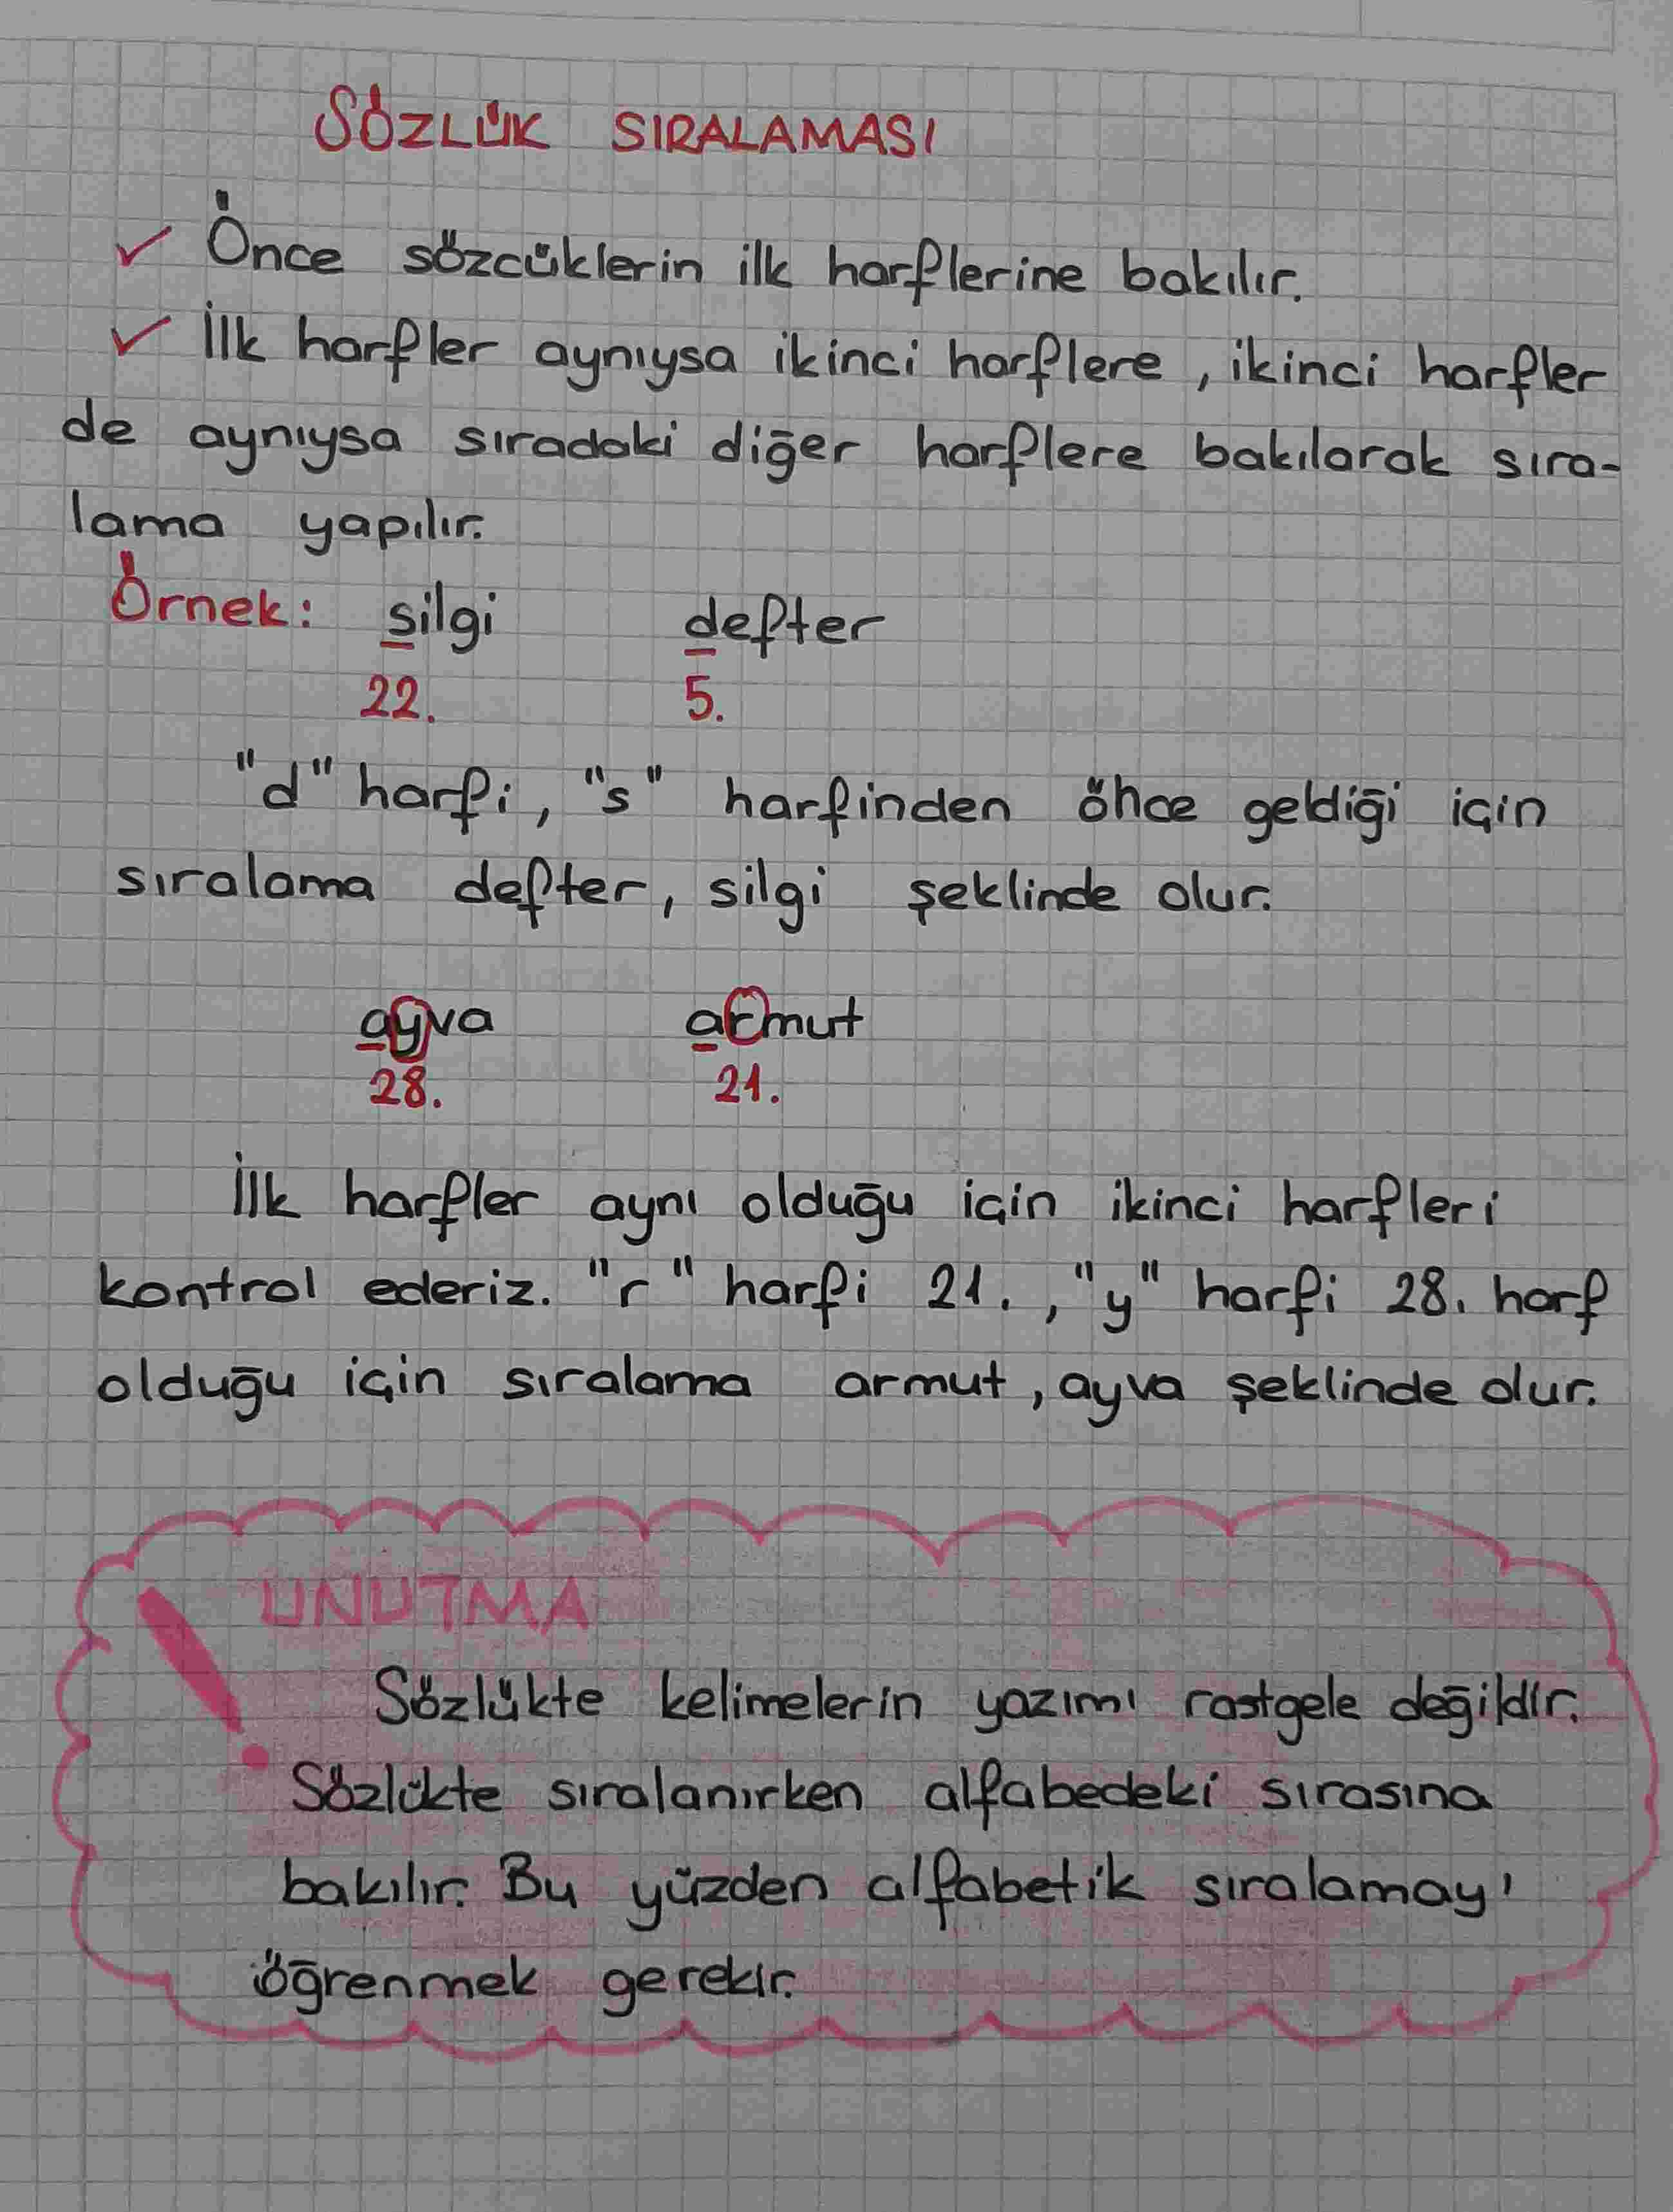 SÖZLÜK SIRALAMASI
✓ Önce sözcüklerin ilk harflerine bakılır.
✓ İlk harfler aynıysa ikinci harflere, ikinci harfler
de aynıysa sıradaki diğer harflere bakılarak sıra-
lama yapılır.
Örnek: silgi defter
22. 5.
"d" harfi, "s" harfinden önce geldiği için
sıralama defter, silgi şeklinde olur.
ayva armut
28. 21.
İlk harfler aynı olduğu için ikinci harfleri
kontrol ederiz. "r" harfi 21., "y" harfi 28. harf
olduğu için sıralama armut, ayva şeklinde olur.
UNUTMA
Sözlükte kelimelerin yazımı rastgele değildir.
Sözlükte sıralanırken alfabedeki sırasına
bakılır. Bu yüzden alfabetik sıralamayı
öğrenmek gerekir.